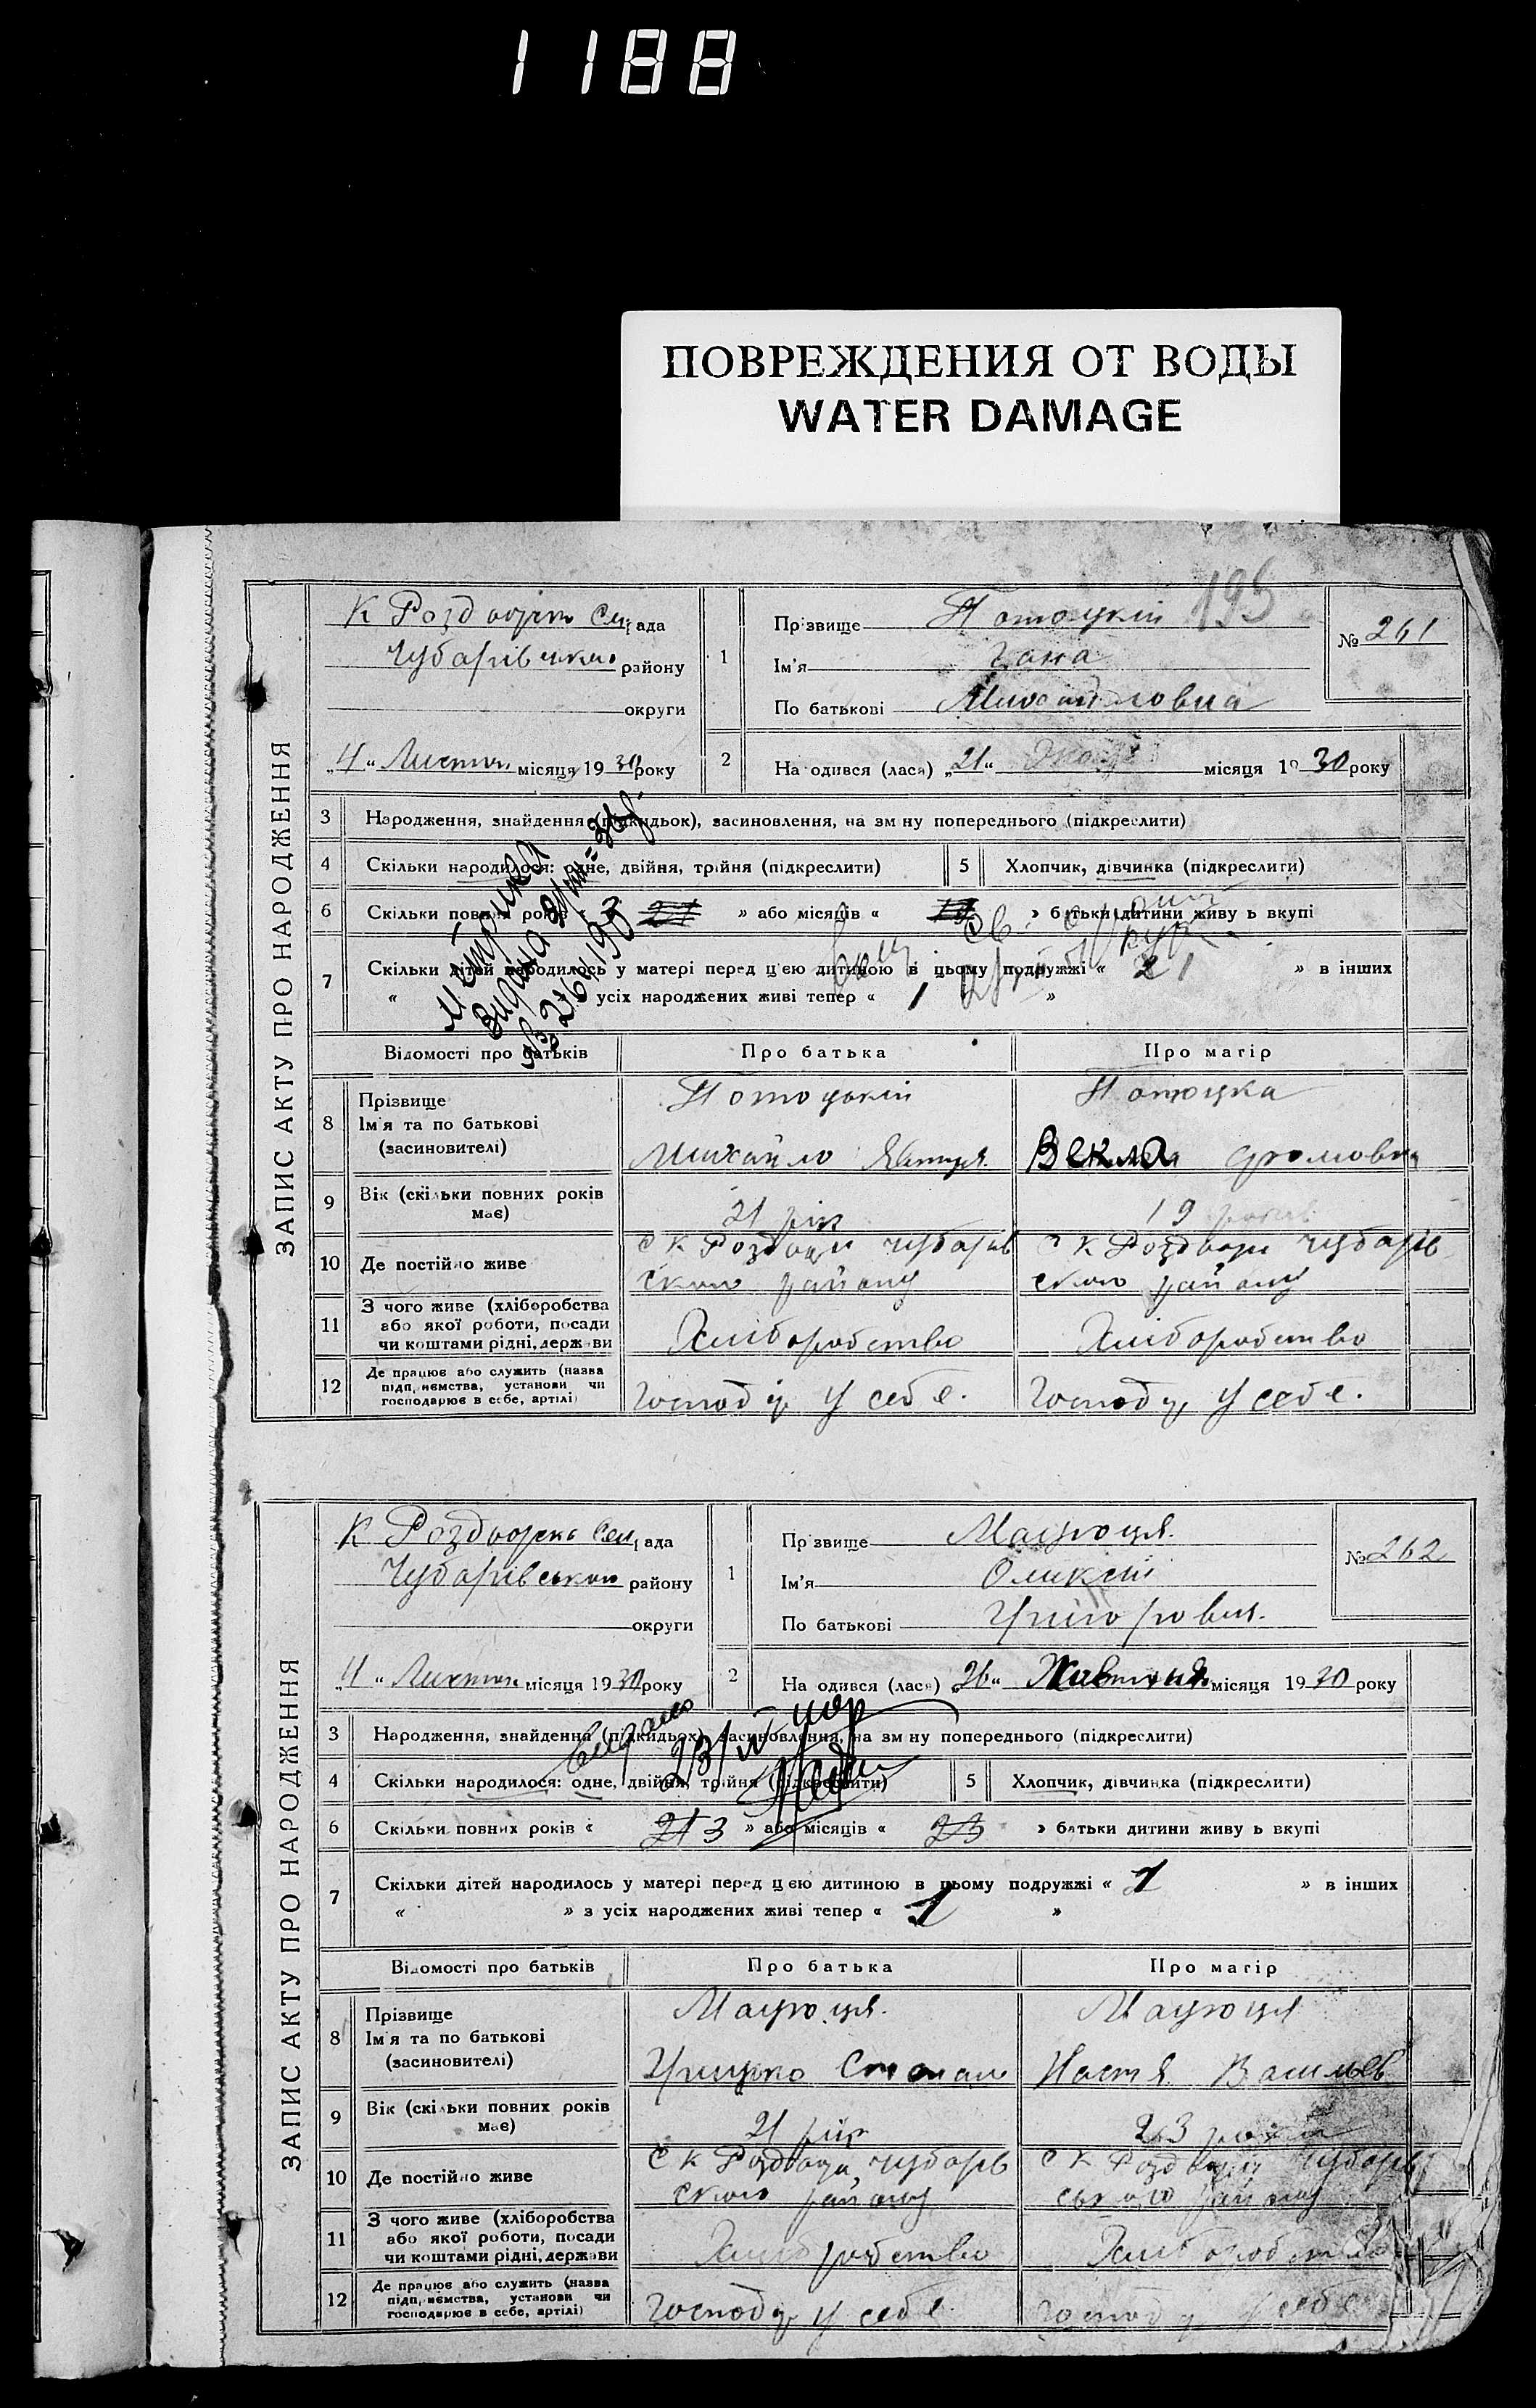 1188
ПОВРЕЖДЕНИЯ ОТ ВОДЫ
WATER DAMAGE
195
ЗАПИС АКТУ ПРО НАРОДЖЕННЯ
К Роздорск Сел рада
Чубарівського району
округи
„4“ Листоп місяця 1930 року
1
Прізвище Потоцкій
Ім'я Гана
По батькові Михайловна
№ 261
2
На одився (лася) „21“ місяця 1930 року
3 Народження, знайдення (підкидьок), засиновлення, на зм ну попереднього (підкреслити)
4 Скільки народилося: одне, двійня, трійня (підкреслити)
5 Хлопчик, дівчинка (підкреслити)
6 Скільки повних років « 2 21 » або місяців « 19 » батьки дитини живу ь вкупі
7 Скільки дітей народилось у матері перед цією дитиною в цьому подружжі « 21 » в інших
« усіх народжених живі тепер « 1 »
Метрика
видана
№ 261
Відомості про батьків
Про батька
Про матір
8 Прізвище
Ім'я та по батькові
(засиновителі)
Потоцький
Михайло
Потоцка
Векла
9 Вік (скільки повних років має)
21 рік
19 років
10 Де постійно живе
с К Роздори Чубарів
ского району
с К Роздори Чубарів
ского району
11 З чого живе (хліборобства
або якої роботи, посади
чи коштами рідні, держави
Хліборобство
Хліборобство
12 Де працює або служить (назва
підп,иємства, установи чи
господарює в себе, артілі)
Господ у себе.
Господ у себе.
ЗАПИС АКТУ ПРО НАРОДЖЕННЯ
К Роздорска Сел рада
Чубарівського району
округи
„4“ Листоп місяця 1930 року
1
Пр звище
Ім'я Олексій
По батькові Григорович.
№ 262
2
На одився (лася) „26“ Жовтня місяця 1930 року
3 Народження, знайдення (підкидьох), засиновлення, на зм ну попереднього (підкреслити)
4 Скільки народилося: одне, двійня, трійня (підкреслити)
5 Хлопчик, дівчинка (підкреслити)
видано
23/IV
6 Скільки повних років « 21 3 » або місяців « 23 » батьки дитини живу ь вкупі
7 Скільки дітей народилось у матері перед цією дитиною в цьому подружжі « 1 » в інших
« » з усіх народжених живі тепер « 1 »
Відомості про батьків
Про батька
Про матір
8 Прізвище
Ім'я та по батькові
(засиновителі)
Грицько Степан
Настя Васильев
9 Вік (скільки повних років має)
21 рік
23 роки
10 Де постійно живе
с К Роздори Чубарів
ского району
с К Роздори Чубарів
ського району
11 З чого живе (хліборобства
або якої роботи, посади
чи коштами рідні, держави
Хліборобство
Хліборобство
12 Де працює або служить (назва
підп,иємства, установи чи
господарює в себе, артілі)
Господ у себе
Господ у себе